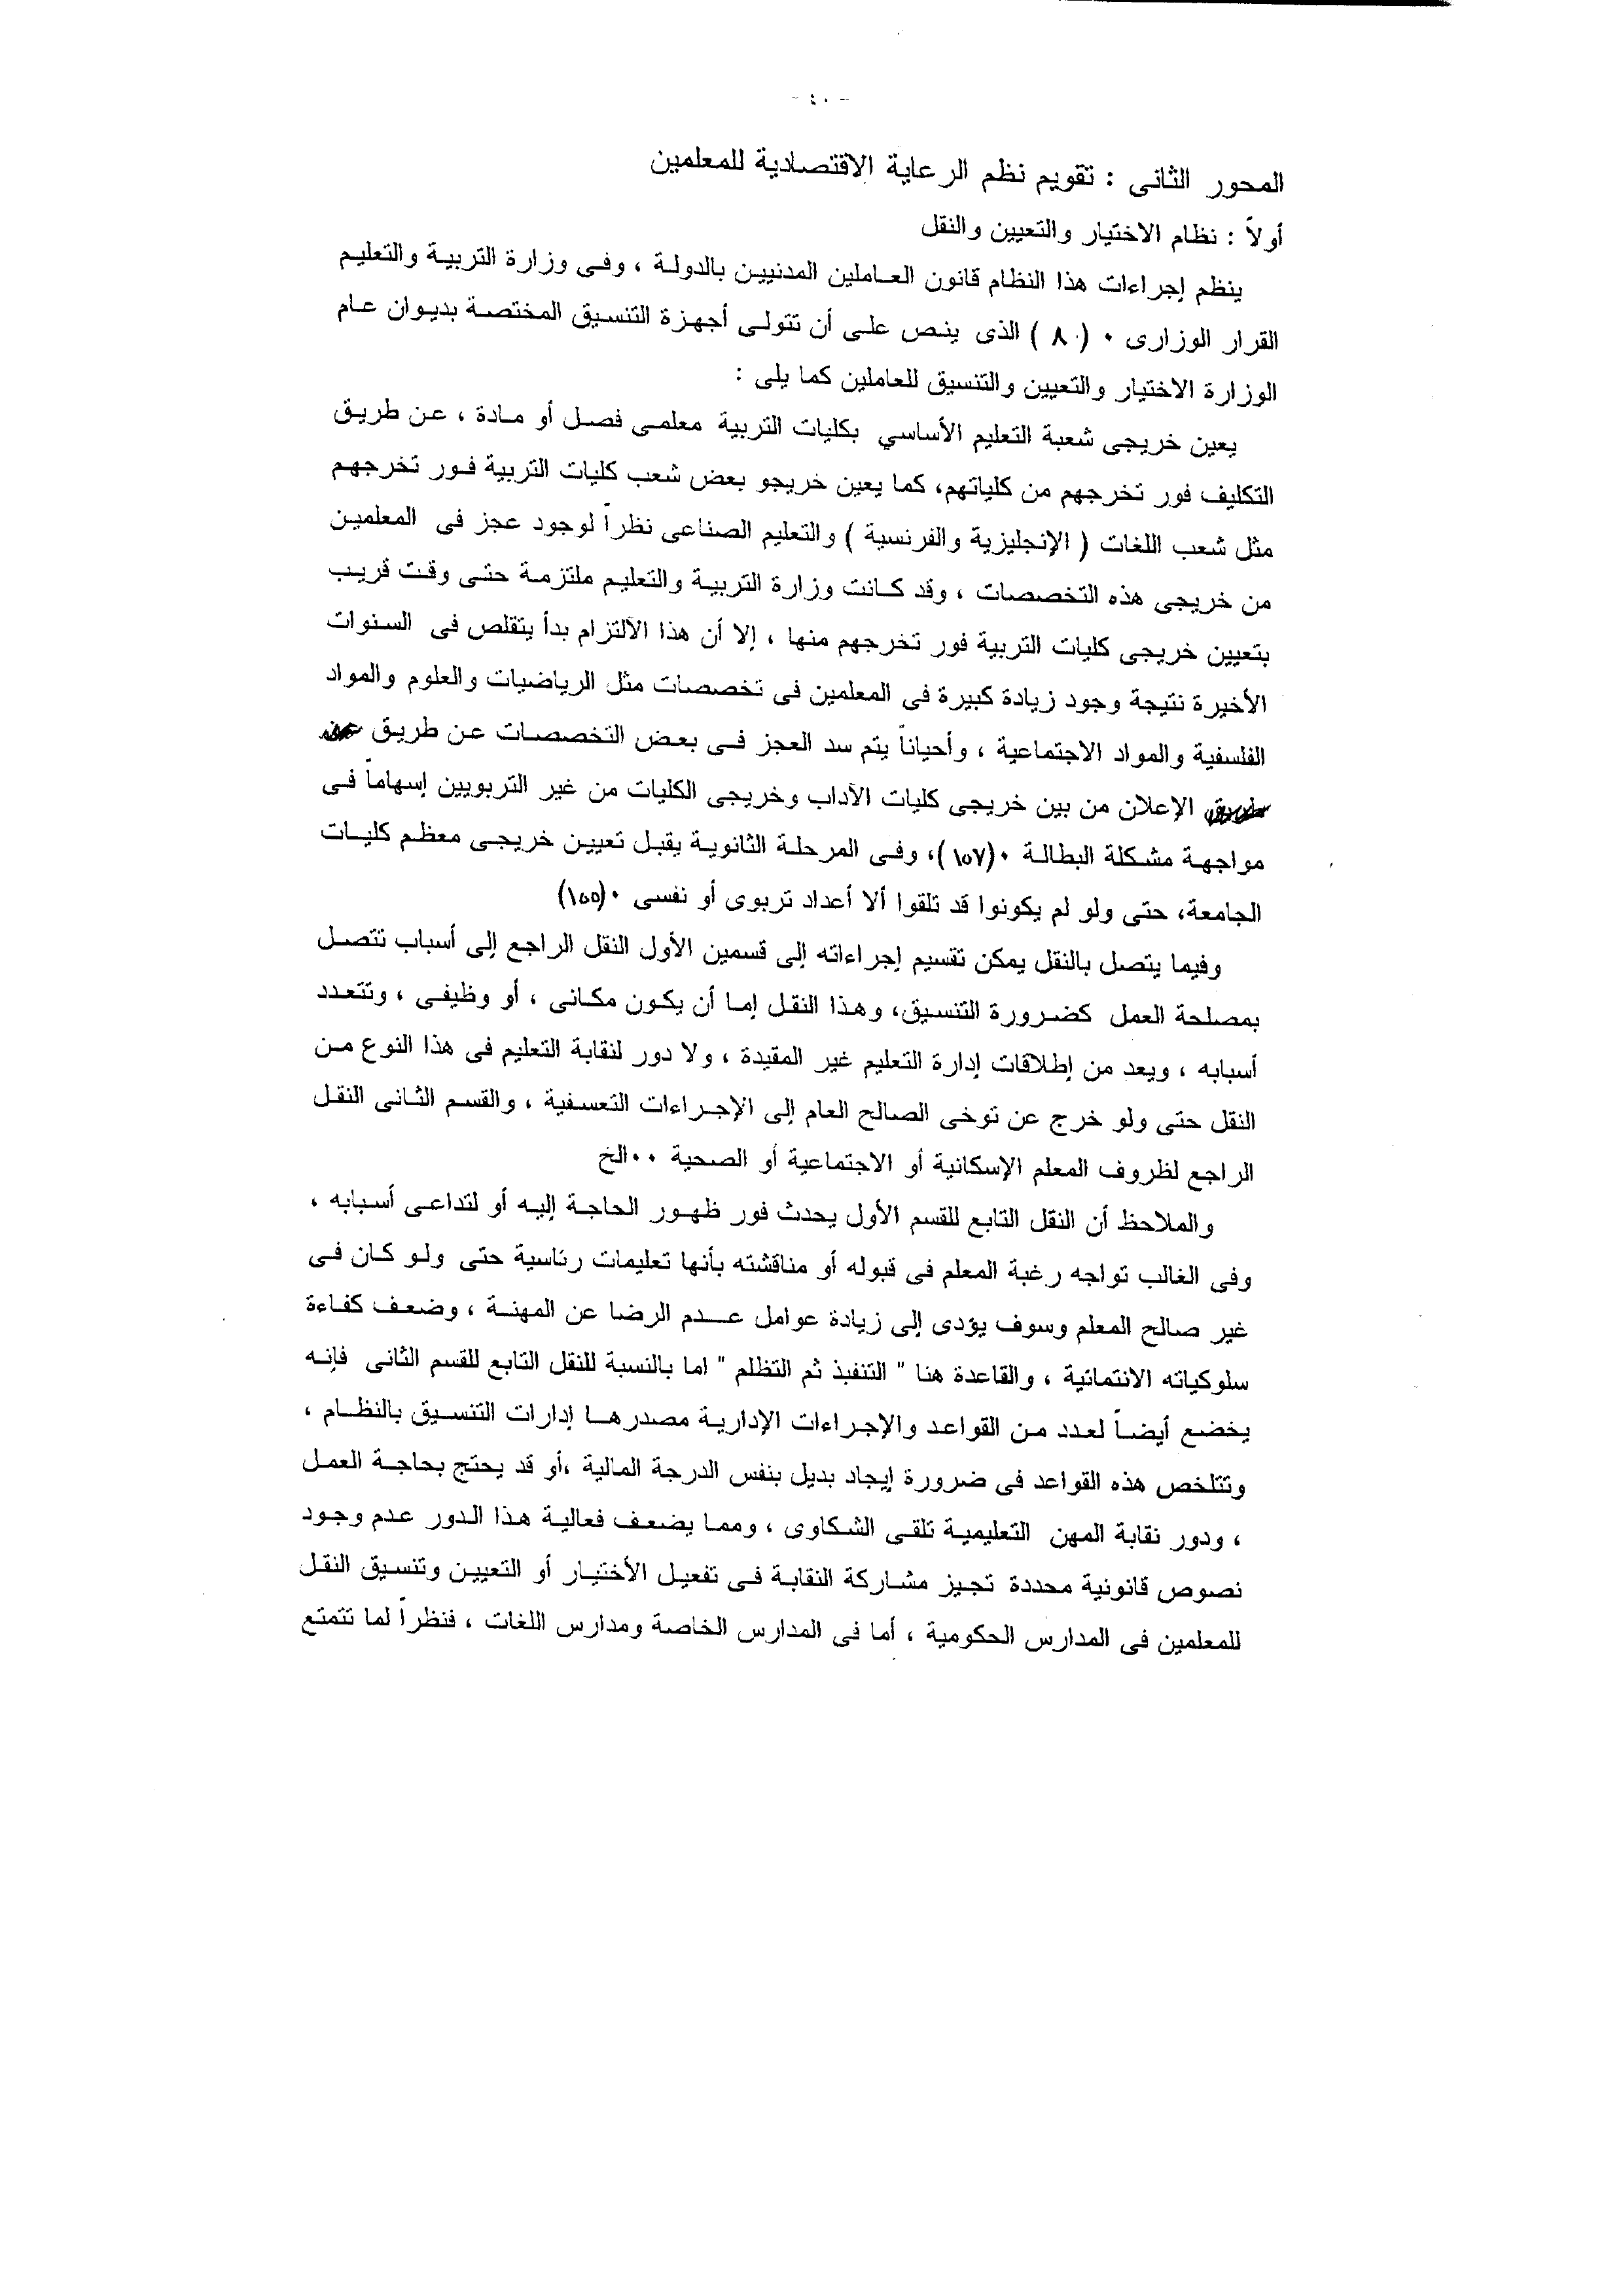 - ٤٠ -
المحور الثانى : تقويم نظم الرعاية الاقتصادية للمعلمين
أولاً : نظام الاختيار والتعيين والنقل
ينظم إجراءات هذا النظام قانون العاملين المدنيين بالدولة ، وفى وزارة التربية والتعليم
القرار الوزارى ٠ ( ٨٠ ) الذى ينص على أن تتولى أجهزة التنسيق المختصة بديوان عام
الوزارة الاختيار والتعيين والتنسيق للعاملين كما يلى :
يعين خريجى شعبة التعليم الأساسي بكليات التربية معلمى فصل أو مادة ، عن طريق
التكليف فور تخرجهم من كلياتهم، كما يعين خريجو بعض شعب كليات التربية فور تخرجهم
مثل شعب اللغات ( الإنجليزية والفرنسية ) والتعليم الصناعى نظراً لوجود عجز فى المعلمين
من خريجى هذه التخصصات ، وقد كانت وزارة التربية والتعليم ملتزمة حتى وقت قريب
بتعيين خريجى كليات التربية فور تخرجهم منها ، إلا أن هذا الالتزام بدأ يتقلص فى السنوات
الأخيرة نتيجة وجود زيادة كبيرة فى المعلمين فى تخصصات مثل الرياضيات والعلوم والمواد
الفلسفية والمواد الاجتماعية ، وأحياناً يتم سد العجز فى بعض التخصصات عن طريق
الإعلان من بين خريجى كليات الآداب وخريجى الكليات من غير التربويين إسهاماً فى
مواجهة مشكلة البطالة ٠(١٥٧)، وفى المرحلة الثانوية يقبل تعيين خريجى معظم كليات
الجامعة، حتى ولو لم يكونوا قد تلقوا ألا أعداد تربوى أو نفسى ٠(١٥٥)
وفيما يتصل بالنقل يمكن تقسيم إجراءاته إلى قسمين الأول النقل الراجع إلى أسباب تتصل
بمصلحة العمل كضرورة التنسيق، وهذا النقل إما أن يكون مكانى ، أو وظيفى ، وتتعدد
أسبابه ، ويعد من إطلاقات إدارة التعليم غير المقيدة ، ولا دور لنقابة التعليم فى هذا النوع من
النقل حتى ولو خرج عن توخى الصالح العام إلى الإجراءات التعسفية ، والقسم الثانى النقل
الراجع لظروف المعلم الإسكانية أو الاجتماعية أو الصحية ٠٠الخ
والملاحظ أن النقل التابع للقسم الأول يحدث فور ظهور الحاجة إليه أو لتداعى أسبابه ،
وفى الغالب تواجه رغبة المعلم فى قبوله أو مناقشته بأنها تعليمات رئاسية حتى ولو كان فى
غير صالح المعلم وسوف يؤدى إلى زيادة عوامل عدم الرضا عن المهنة ، وضعف كفاءة
سلوكياته الانتمائية ، والقاعدة هنا " التنفبذ ثم التظلم " اما بالنسبة للنقل التابع للقسم الثانى فإنه
يخضع أيضاً لعدد من القواعد والإجراءات الإدارية مصدرها إدارات التنسيق بالنظام ،
وتتلخص هذه القواعد فى ضرورة إيجاد بديل بنفس الدرجة المالية ،أو قد يحتج بحاجة العمل
، ودور نقابة المهن التعليمية تلقى الشكاوى ، ومما يضعف فعالية هذا الدور عدم وجود
نصوص قانونية محددة تجيز مشاركة النقابة فى تفعيل الأختيار أو التعيين وتنسيق النقل
للمعلمين فى المدارس الحكومية ، أما فى المدارس الخاصة ومدارس اللغات ، فنظراً لما تتمتع